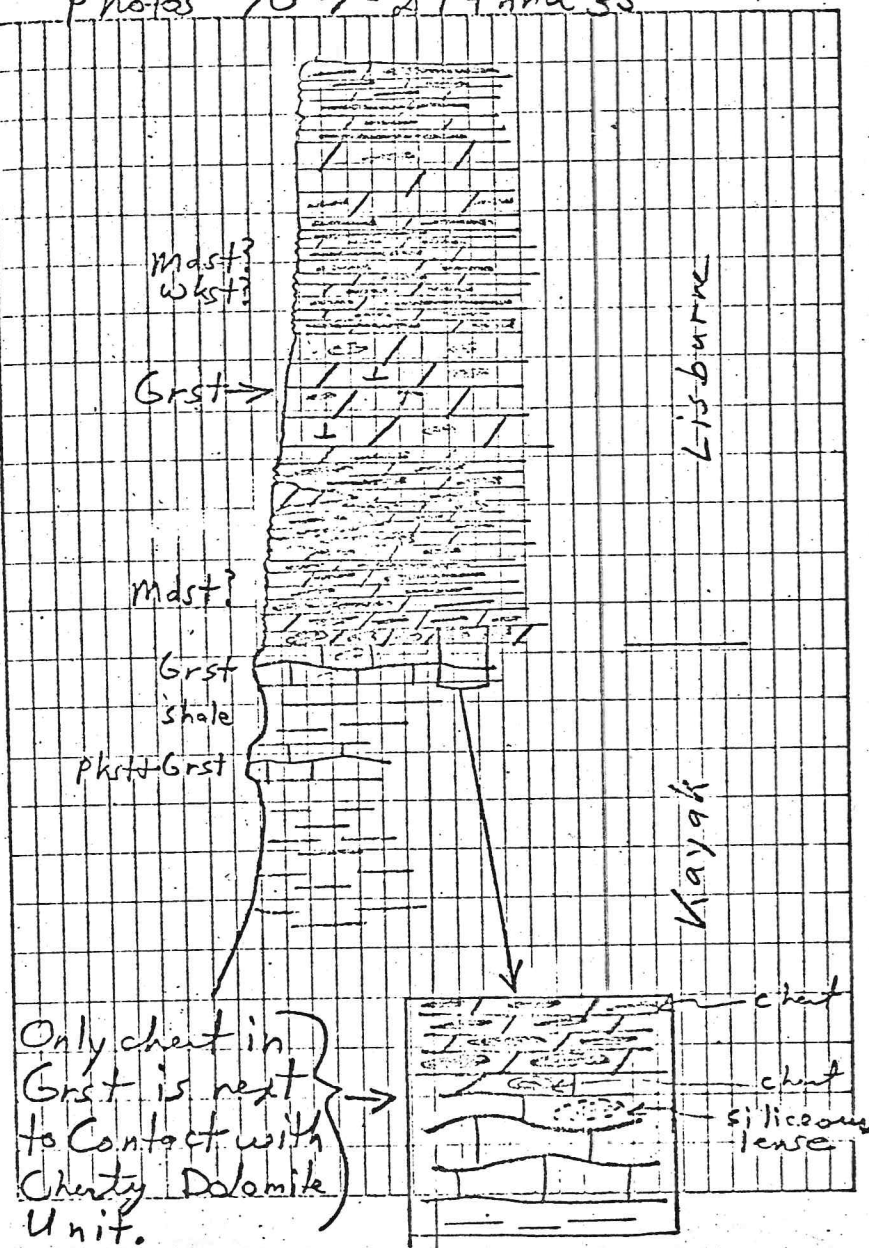 Photos
Mdst?
Wkst?
Grst →
Lisburne
Mdst?
Grst
shale
Pkst+Grst
Kayak
Only chert in
Grst is next
to Contact with
Cherty Dolomite
Unit.
chert
chert
siliceous
lense